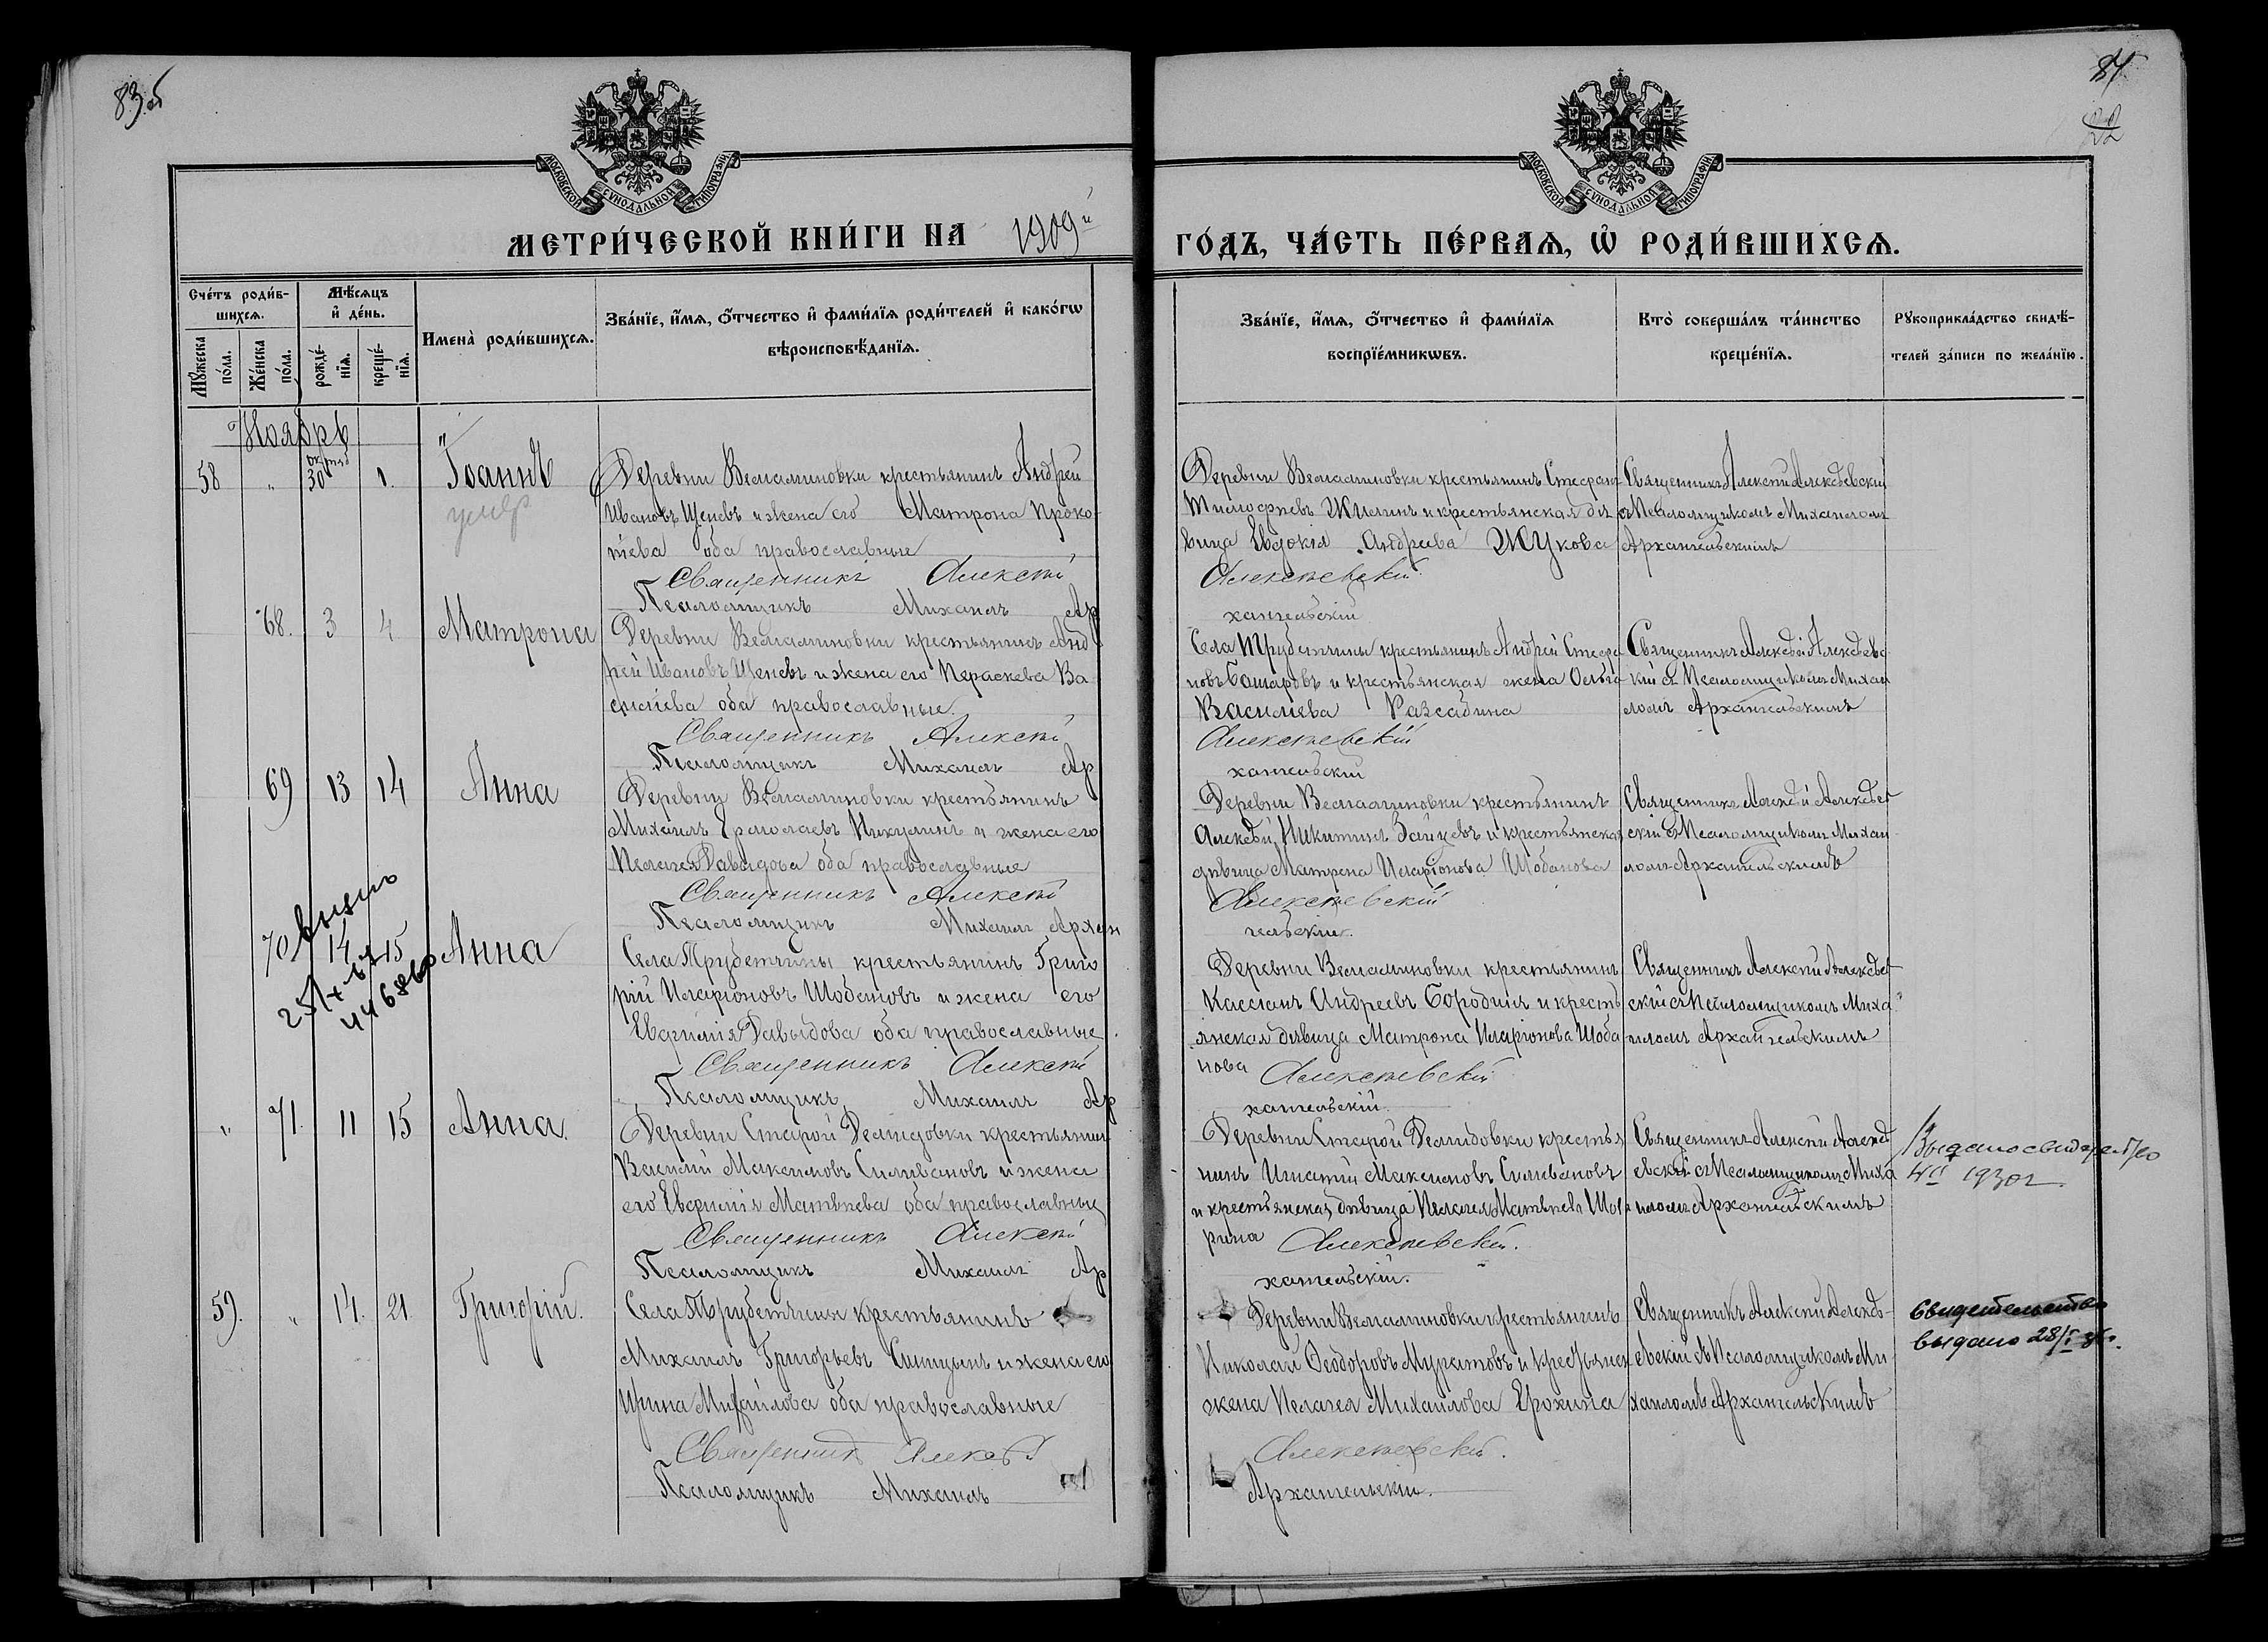 83об
МОСКОВСКОЙ СѴНОДАЛЬНОЙ ТИПОГРАФІИ
МЕТРИ́ЧЕСКОЙ КНИ́ГИ НА 1909й
Сче́тъ роди́в-
шихсѧ.
Мѣ́сѧцъ
и҆ де́нь.
Мꙋ́жеска по́ла.
Же́нска по́ла.
рожде́-
нїѧ.
креще́-
нїѧ.
Имена̀ роди́вшихсѧ.
Зва́нїе, и҆́мѧ, ѻ҆́тчество и҆ фами́лїѧ роди́телей и҆ како́гѡ
вѣроисповѣ́данїѧ.
Ноябрь
58 " октяб 30 1. Іоаннъ
умер
Деревни Вельяминовки крестьянинъ Андрей
Ивановъ Щеневъ и жена его Матрона Проко-
піева оба православные
Священникъ Алексѣй
Псаломщикъ Михаилъ Ар
68. 3 4 Матрона
Деревни Вельяминовки крестьянинъ Анд
рей Ивановъ Щеневъ и жена его Параскева Ва
силіева оба православные.
Священникъ Алексѣй
Псаломщикъ Михаилъ Ар
69 13 14 Анна
Деревни Вельяминовки крестьянинъ
Михаилъ Ермолаевъ Никулинъ и жена его
Пелагея Давыдова оба православные
Священникъ Алексѣй
Псаломщикъ Михаилъ Архан
70 14 15 Анна
Села Трубетчины крестьянинъ Григо
рій Иларіоновъ Шобановъ и жена его
Евфимія Давыдова оба православные.
Священникъ Алексѣй
Псаломщикъ Михаилъ Ар
" 71. 11 15 Анна.
Деревни Старой Демидовки крестьянин
Василій Максимовъ Силивановъ и жена
его Евфимія Матвѣева оба православные
Священникъ Алексѣй
Псаломщикъ Михаилъ Ар
59. " 14. 21 Григорій.
Села Трубетчины крестьянинъ
Михаилъ Григорьевъ Синицынъ и жена его
Ирина Михайлова оба православные
Священникъ Алексѣй
Псаломщикъ Михаилъ
84
22
МОСКОВСКОЙ СѴНОДАЛЬНОЙ ТИПОГРАФІИ
ГО́ДЪ, ЧА́СТЬ ПЕ́РВАѦ, Ѡ҆ РОДИ́ВШИХСѦ.
Зва́нїе, и҆́мѧ, ѻ҆́тчество и҆ фами́лїѧ
воспрїе́мникѡвъ.
Кто̀ соверша́лъ та́инство
креще́нїѧ.
Рꙋкоприкла́дство свидѣ́-
телей за́писи по жела́нїю.
Деревни Вельяминовки крестьянинъ Стефанъ
Тимофѣевъ Жилинъ и крестьянская дѣ
вица Евдокія Андреева Жукова
Алексѣевскій.
хангельскій
Священникъ Алексѣй Алексѣевскій
съ Псаломщикомъ Михаиломъ
Архангельскимъ
Села Трубетчины крестьянинъ Андрей Стефа
новъ Башаровъ и крестьянская жена Ольга
Василіева
Алексѣевскій
хангельскій
Священникъ Алексѣй Алексѣевс
кій съ Псаломщикомъ Михаи
ломъ Архангельскимъ
Деревни Вельяминовки крестьянинъ
Алексѣй Никитинъ Зайцевъ и крестьянская
дѣвица Матрена Иларіонова Шобанова
Алексѣевскій
гельскій.
Священникъ Алексѣй Алексѣев
скій съ Псаломщикомъ Михаи
ломъ Архангельскимъ
Деревни Вельяминовки крестьянинъ
Кассіанъ Андреевъ Бородинъ и кресть
янская дѣвица Матрона Иларіонова Шоба
нова Алексѣевскій
хангельскій.
Священникъ Алексѣй Алексѣев
скій съ Псаломщикомъ Миха
иломъ Архангельскимъ
Деревни Старой Демидовки крестья
нинъ Игнатій Максимовъ Силивановъ
и крестьянская дѣвица Пелагея Матвѣева
рина Алексѣевскій.
хангельскій.
Священникъ Алексѣй Алексѣ
евскій съ Псаломщикомъ Миха
иломъ Архангельскимъ
1930г.
Деревни Вельяминовки крестьянинъ
Николай Ѳеодоровъ Муратовъ и крестьянск
жена Пелагея Михаилова Ерохина
Алексѣевскій.
Архангельскій.
Священникъ Алексѣй Алексѣ-
евскій съ Псаломщикомъ Ми-
хаиломъ Архангельскимъ
Свидетельство
выдано 28/I